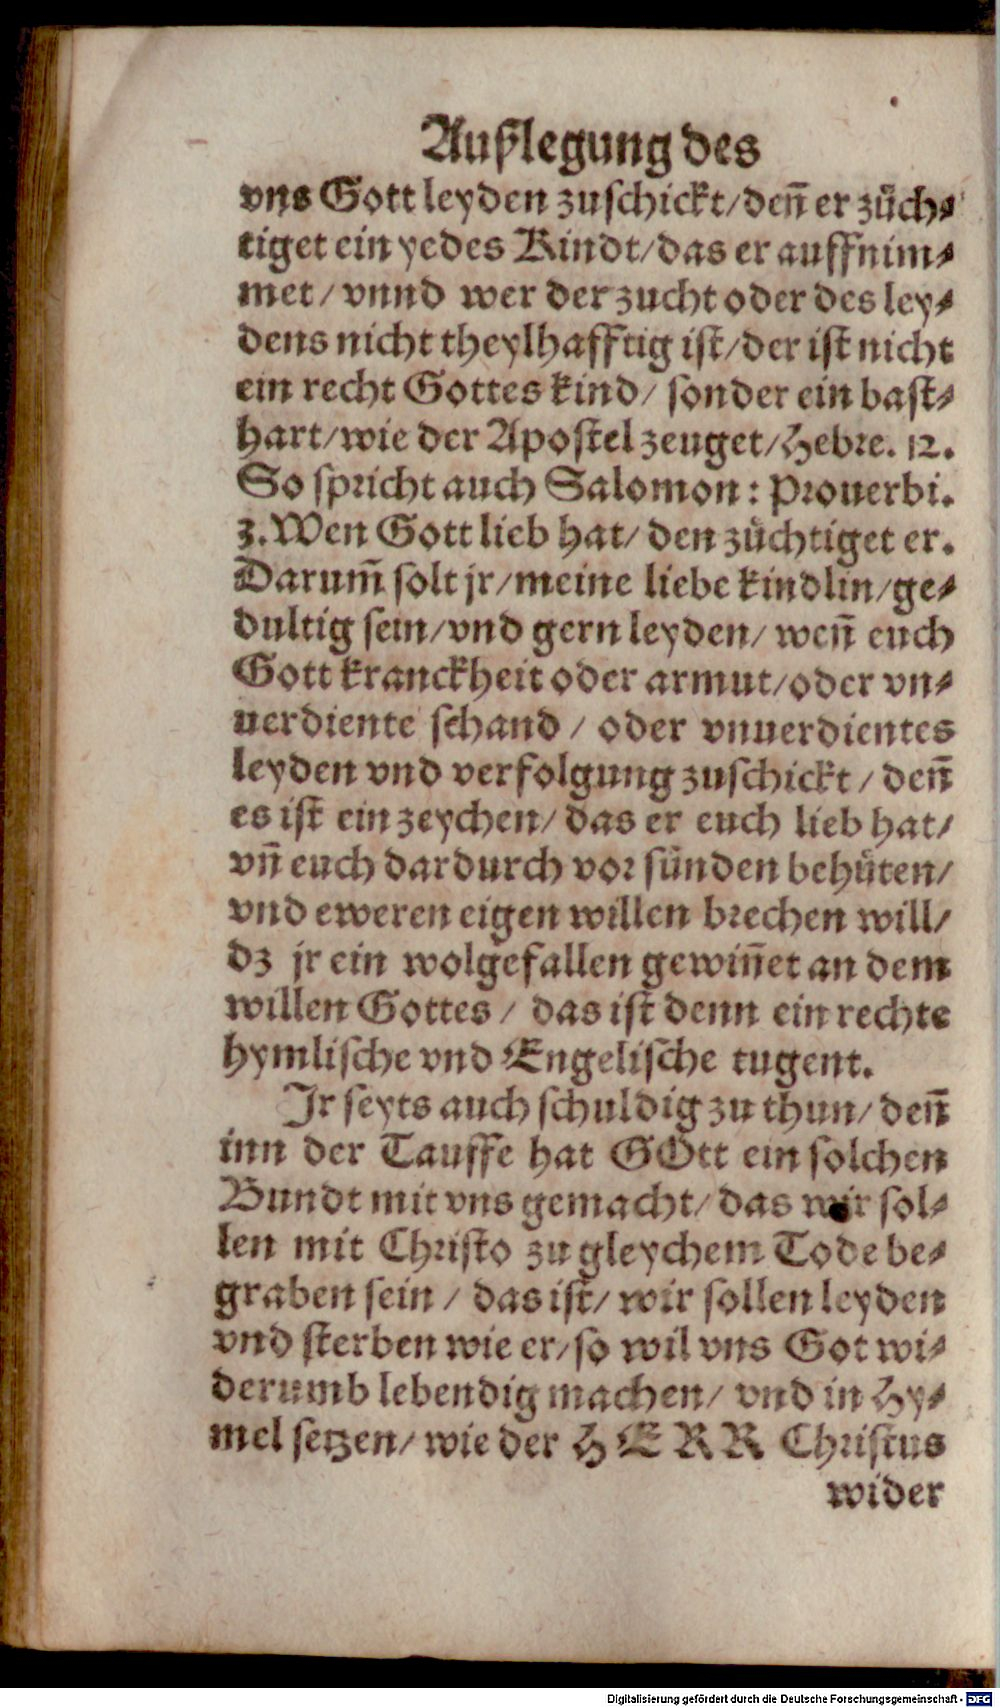 Außlegung des
vns Gott leyden zuschickt/denn̄ er zuͤch⸗
tiget ein yedes Kindt/das er auffnim⸗
met/ vnnd wer der zucht oder des ley⸗
dens nicht theylhafftig ist/der ist nicht
ein recht Gottes kind/ sonder ein bast⸗
hart/wie der Apostel zeuget/Hebre. 12.
So spricht auch Salomon: Prouerbi.
3. Wen Gott lieb hat/ den zuͤchtiget er.
Darum̄ solt jr/meine liebe kindlin/ge⸗
dultig sein/vnd gern leyden/ wen̄ euch
Gott kranckheit oder armut/oder vn⸗
uerdiente schand / oder vnuerdientes
leyden vnd verfolgung zuschickt / den̄
es ist ein zeychen/ das er euch lieb hat/
vn̄ euch dardurch vor suͤnden behuͤten/
vnd eweren eigen willen brechen will/
dz jr ein wolgefallen gewin̄et an dem
willen Gottes / das ist denn ein rechte
hymlische vnd Engelische tugent.
Jr seyts auch schuldig zu thun/ den̄
inn der Tauffe hat GOtt ein solchen
Bundt mit vns gemacht/ das wir sol⸗
len mit Christo zu gleychem Tode be⸗
graben sein / das ist/ wir sollen leyden
vnd sterben wie er/so wil vns Got wi⸗
derumb lebendig machen/ vnd in Hy⸗
mel setzen/ wie der HERR Christus
wider
Digitalisierung gefördert durch die Deutsche Forschungsgemeinschaft - DFG